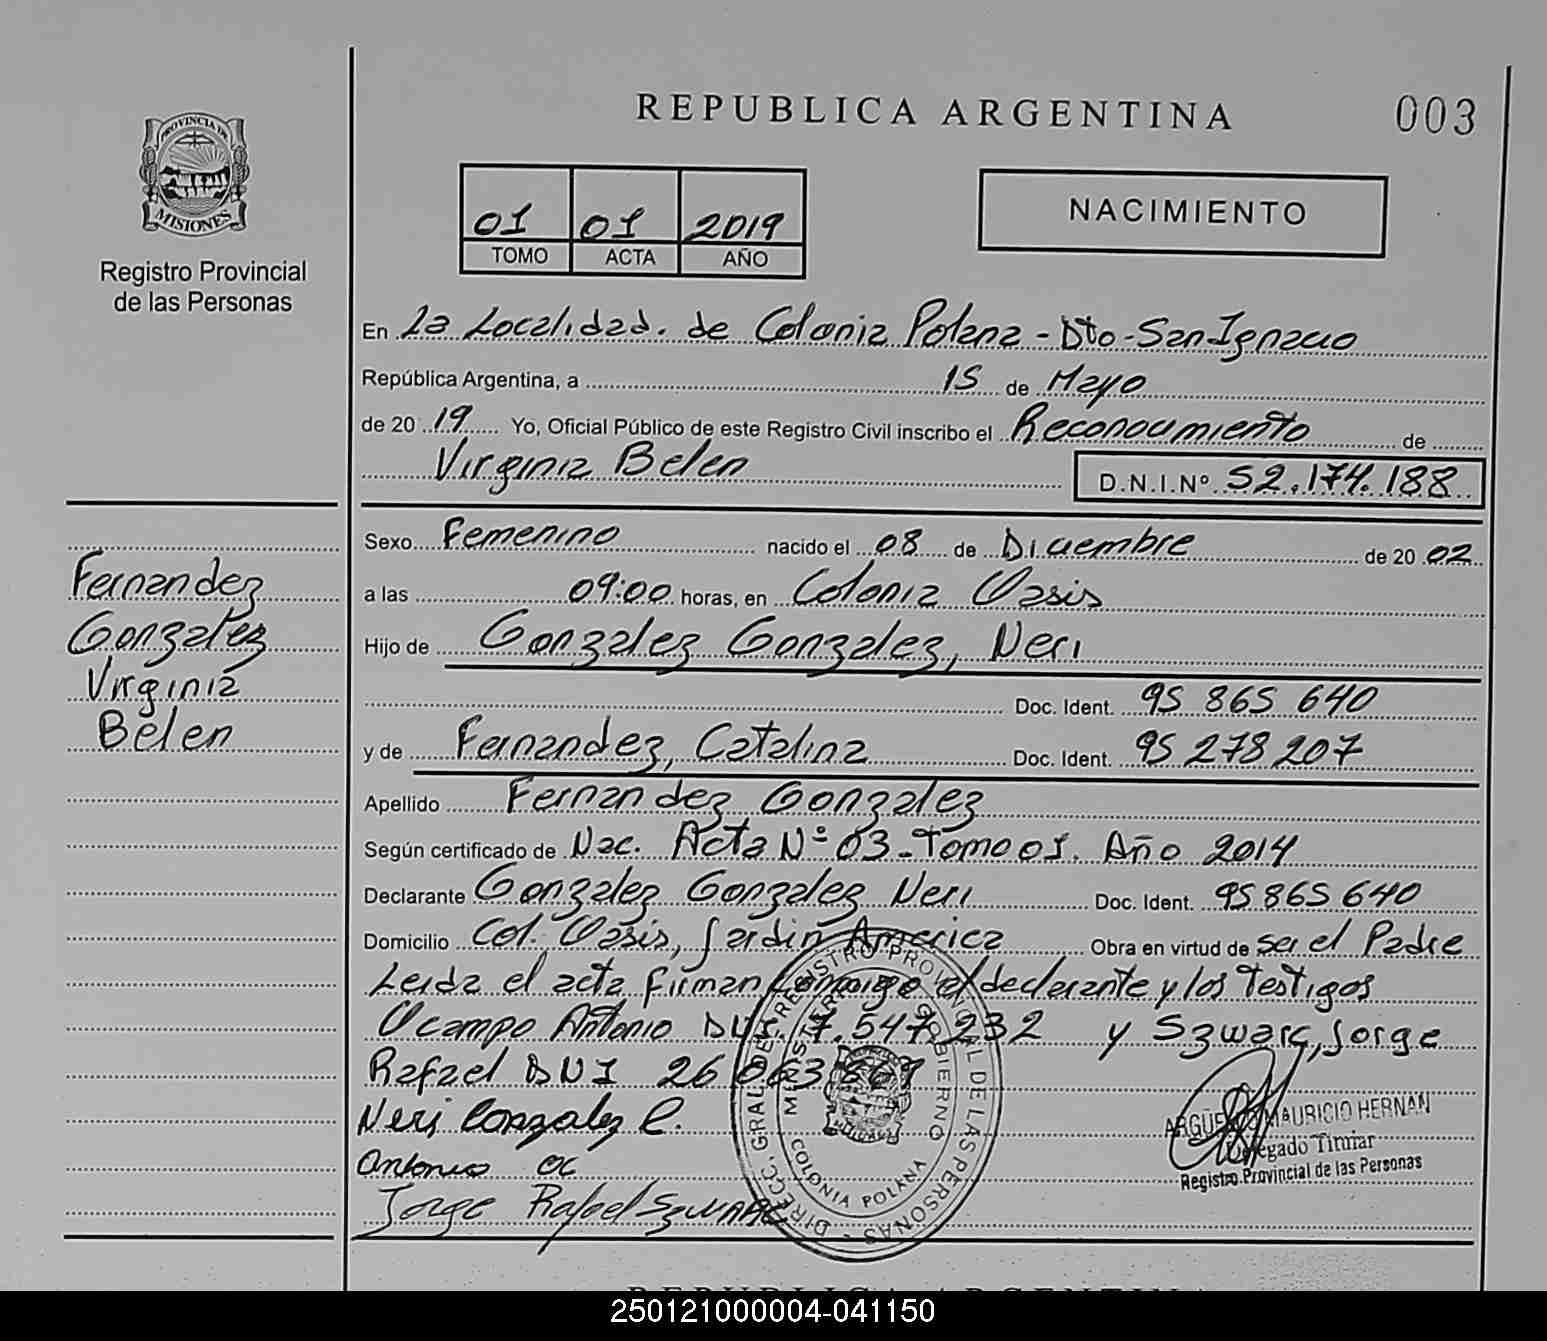 REPUBLICA ARGENTINA
003
PROVINCIA DE
MISIONES
Registro Provincial
de las Personas
01 01 2019
TOMO ACTA AÑO
NACIMIENTO
En La Localidad. de Colonia Polana - Dto - San Ignacio
República Argentina, a 15 de Mayo
de 20 19 Yo, Oficial Público de este Registro Civil inscribo el Reconocimiento de
Virginia Belen
D.N.I.Nº 52.174.188
Sexo Femenino nacido el 08 de Diciembre de 20 02
a las 09:00 horas, en Colonia Oasis
Hijo de Gonzalez Gonzalez, Neri
Doc. Ident. 95 865 640
y de Fernandez, Catalina Doc. Ident. 95 278 207
Apellido Fernandez Gonzalez
Según certificado de Nac. Acta Nº 03 - Tomo 01. Año 2014
Declarante Gonzalez Gonzalez Neri Doc. Ident. 95 865 640
Domicilio Col. Oasis, Jardin America Obra en virtud de ser el Padre
Leida el acta firman conmigo el declarante y los testigos
Ocampo Antonio 7.547.232 y Szwarc, Jorge
Rafael DNI 26
Neri Gonzalez
Antonio oc
Jorge Rafael Szwarc
Fernandez
Gonzalez
Virginia
Belen
DIRECC. GRAL. DEL REGISTRO PROVINCIAL DE LAS PERSONAS -
GOBIERNO
COLONIA POLANA
MAURICIO HERNAN
Delegado Titular
Registro Provincial de las Personas
REPUBLICA ARGENTINA
250121000004-041150